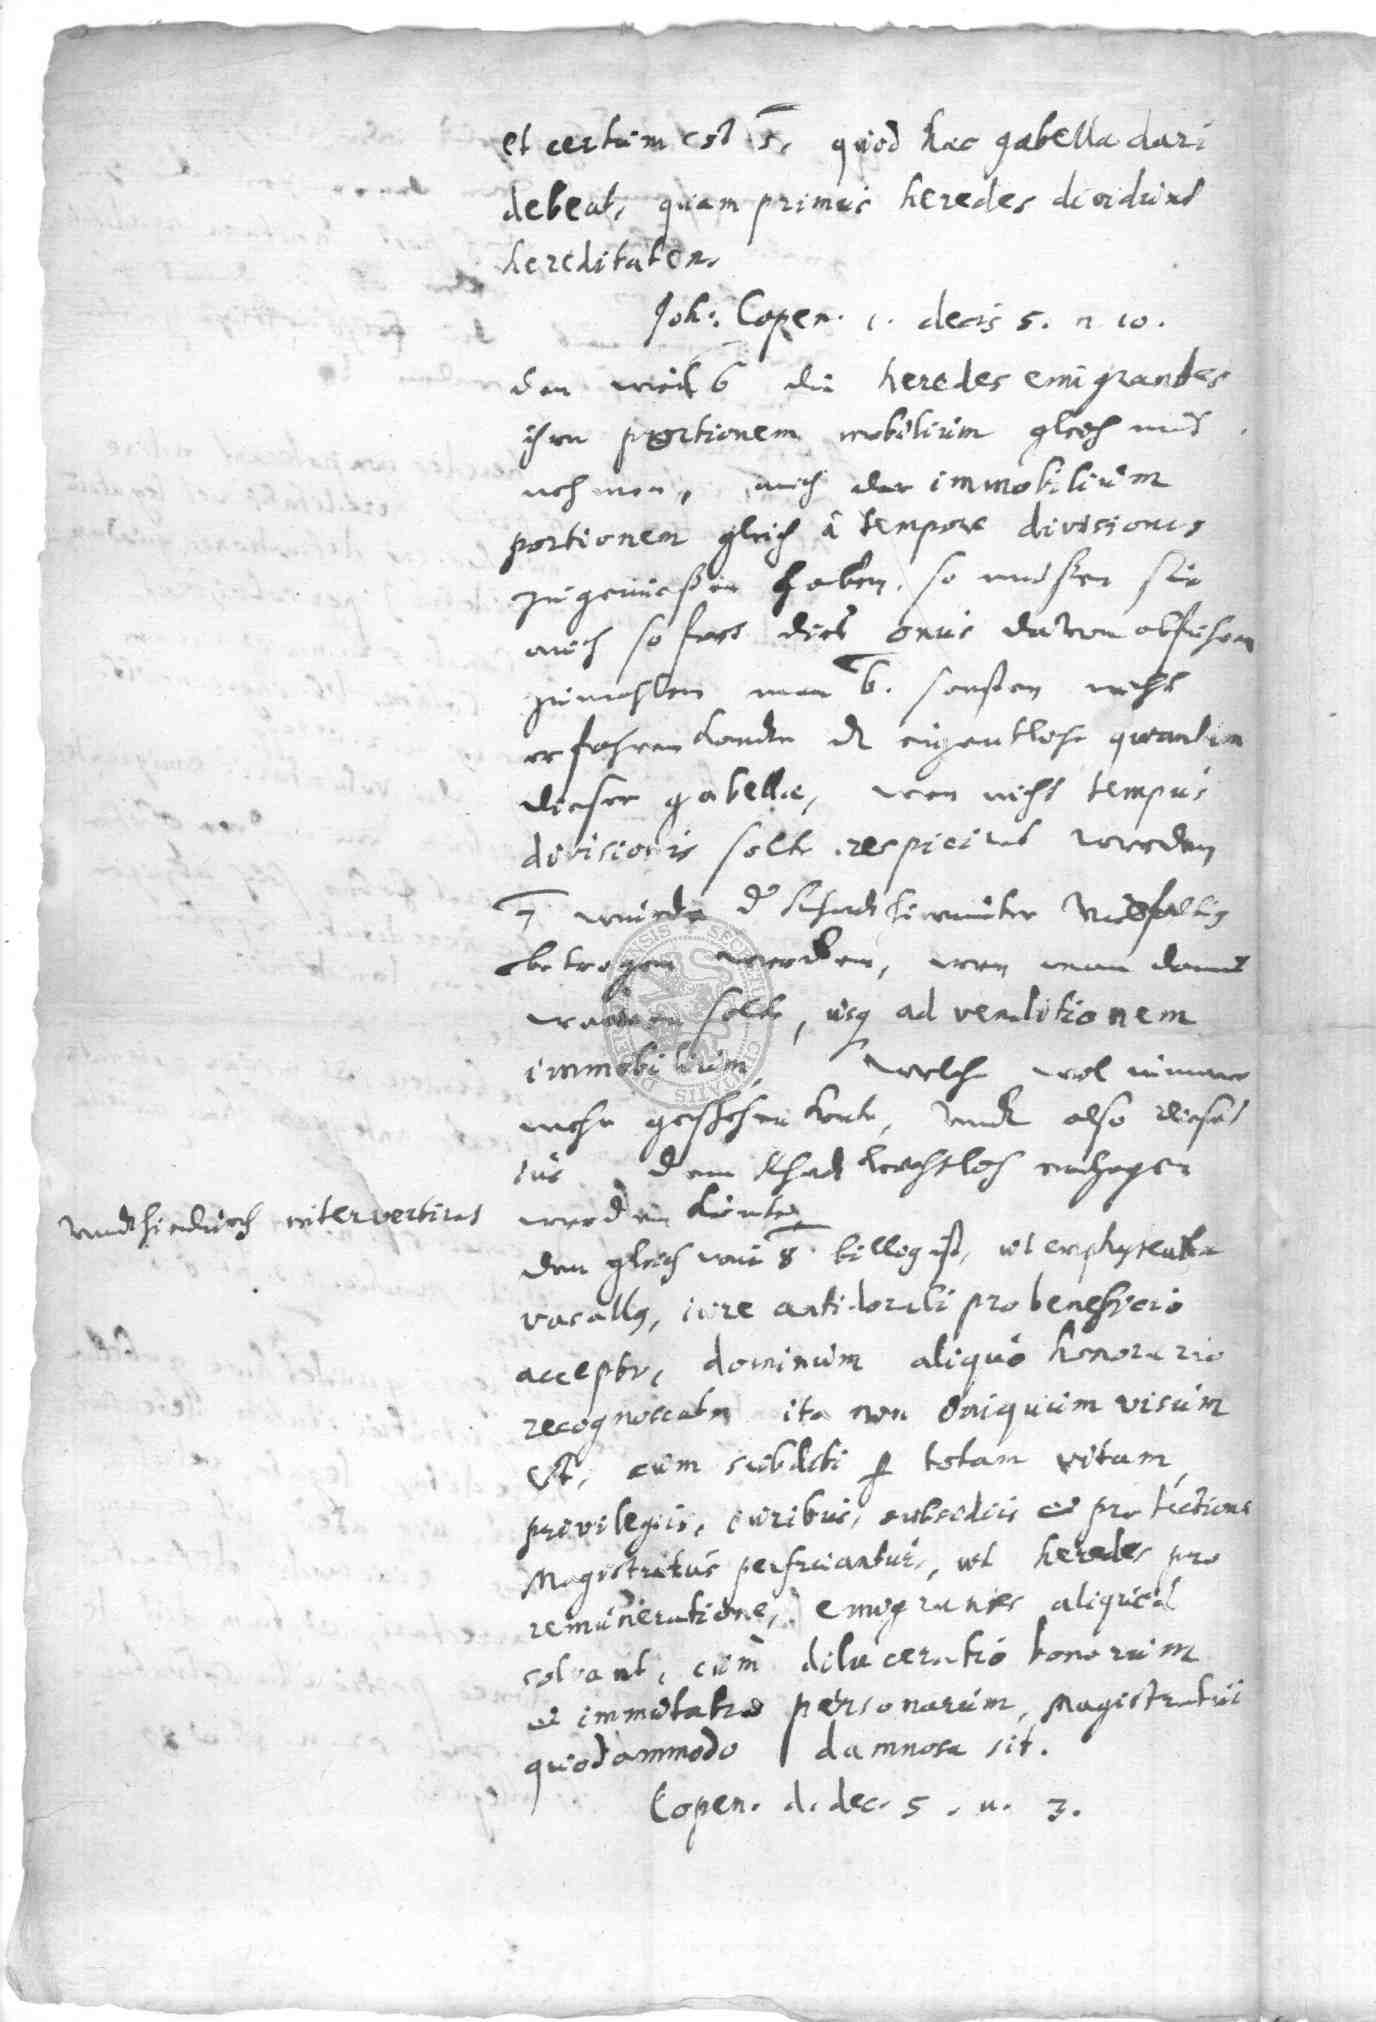 et certum est 5. quod haec gabella dari
debeat, quam primùm heredes dividunt
hereditatem.
Joh. Copen. 1. decis 5. n. 10.
den weil 6 die heredes emigrantes
ihren portionem mobilium gleich mit
nehmen, auch der immobilium
portionem gleich à tempore divisionis
zugeniessen haben. so müssen sie
auch so fort dies onus davon abführen
zumahlen man 6. sonsten nicht
erfahren kondte dz eigentlich quantum
dieser gabellae, wen nicht tempus
divisionis solte respiciret werden
7 würde d' vielfaltig
betrogen werden, wen man damit
warten solte, usq ad venditionem
immobilium, welche wol nimmer
mehr geschehen konte, undt also dieses
ius dem entzogen
undt hiedurch intervertiret
werden könte
den gleich wie 8. billig ist, ut emphyteuta
vasallq, iure antidorali pro beneficio
accepto, dominum aliquo honorario
recognoscat ita non iniquum visum
est, cum subditi p totam vitam,
privilegiis, iuribus, subsidiis et protectione
Magistratus perfruantur, ut heredes pro
remuneratione, emigrantes aliquid
solvant, cum dilaceratio bonorum
et immutatio personarum, Magistratui
quodammodo damnosa sit.
Copen. d. dec. 5. n. 3.